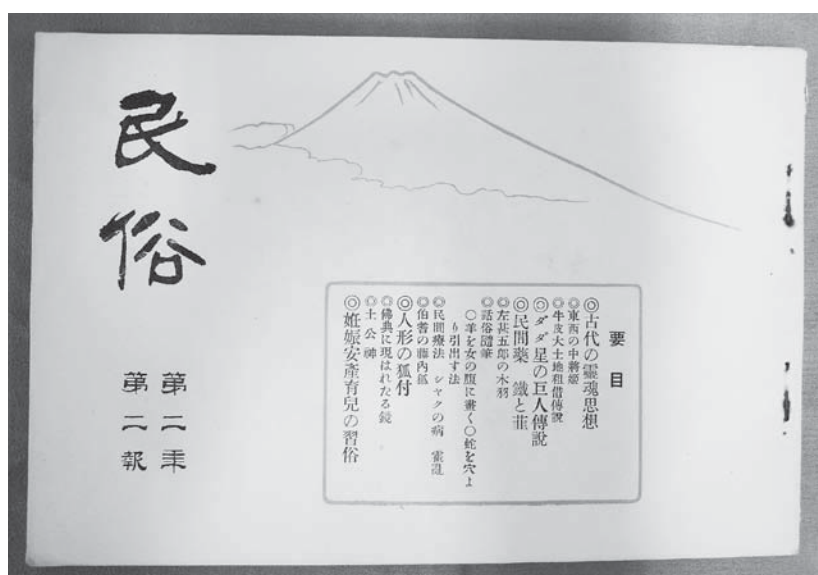 民俗
第二年
第二報
要目
◎古代の靈魂思想
◎東西の中將姫
◎牛皮大土地租借傳說
◎ダダ星の巨人傳說
◎民間藥 鐵と韮
◎左甚五郎の木羽
◎話俗隨筆
〇羊を女の腹に畫く〇蛇を穴よ
り引出す法
◎民間療法 シヤクの病 霍亂
◎伯耆の藤內狐
◎人形の狐付
◎佛典に現はれたる鏡
◎土公神
◎姙娠安產育兒の習俗